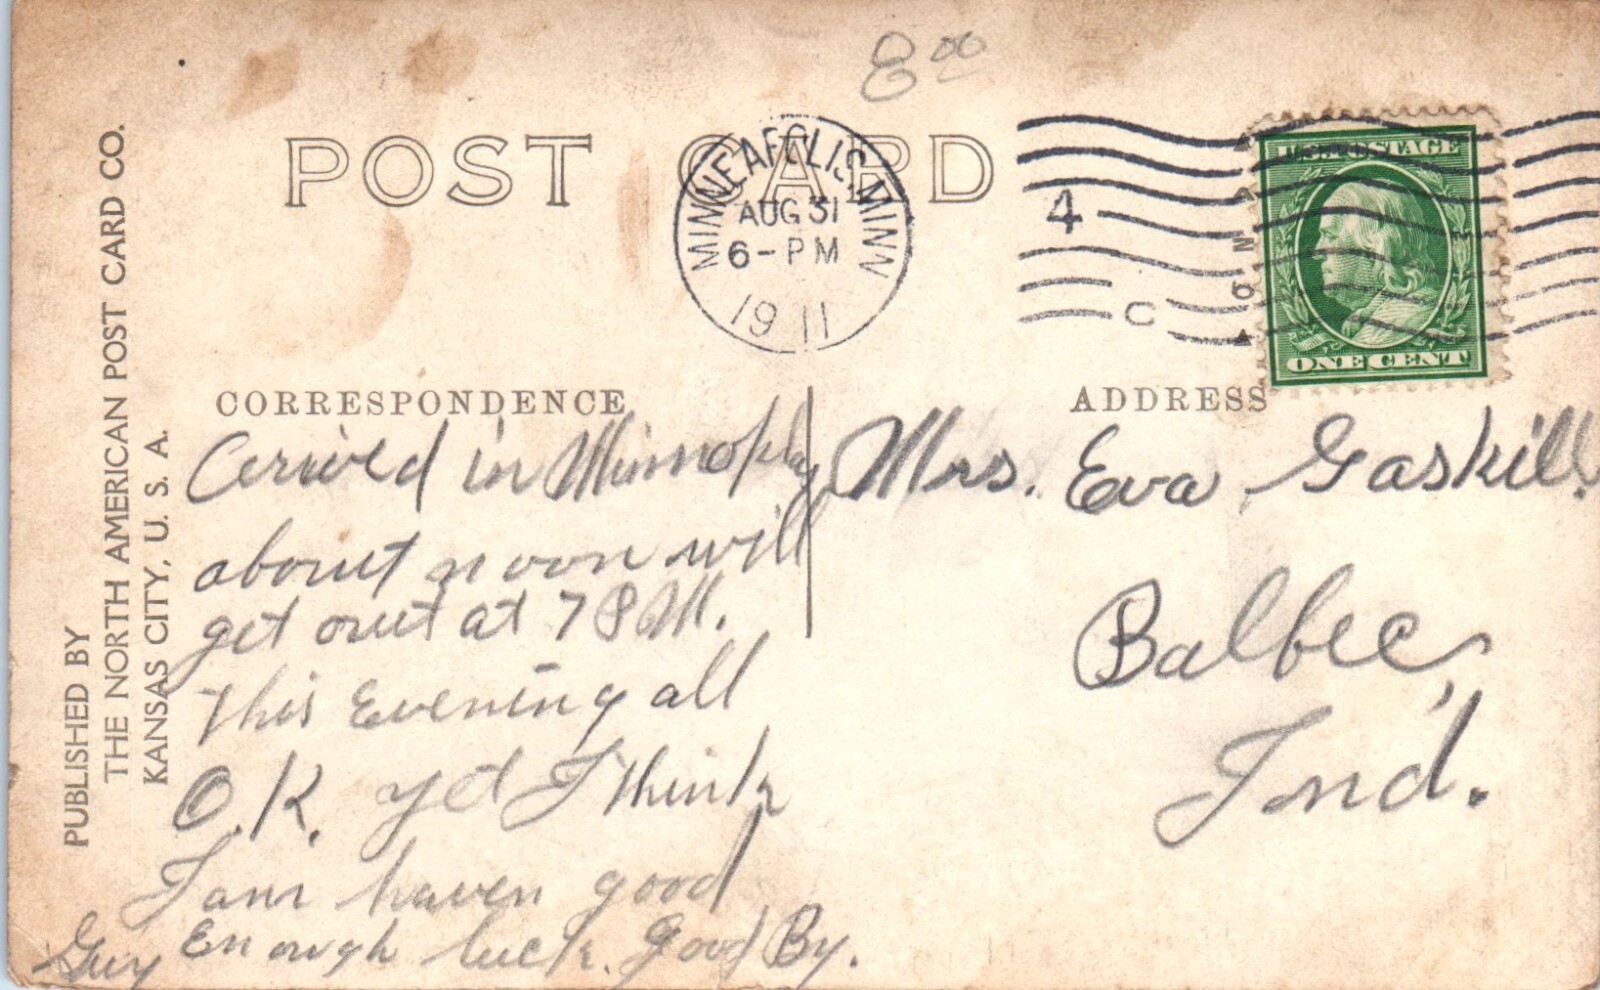 8 00
POST CARD
MINNEAPOLIS, MINN
AUG 31
6-PM
1911
4
C
U.S. POSTAGE
ONE CENT
PUBLISHED BY
THE NORTH AMERICAN POST CARD CO.
KANSAS CITY, U. S. A.
CORRESPONDENCE
Arrived in
about noon will
get out at 7 P.M.
this Evening all
O.K. yet I think
I am haven good
Enough luck. Good By.
Guy
ADDRESS
Mrs. Eva Gaskill.
Balbec,
Ind.